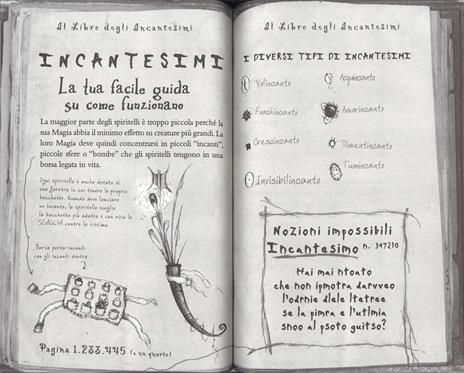 Il Libro degli Incantesimi
INCANTESIMI
La tua facile guida
su come funzionano
La maggior parte degli spiritelli è troppo piccola perché la
sua Magia abbia il minimo effetto su creature più grandi. La
loro Magia deve quindi concentrarsi in piccoli "incanti",
piccole sfere o "bombe" che gli spiritelli tengono in una
borsa legata in vita.
Ogni spiritello è anche dotato di
una faretra in cui tenere le proprie
bacchette. Quando deve lanciare
un incanto, lo spiritello sceglie
la bacchetta più adatta e con essa lo
SCAGLIA contro la vittima.
Borsa porta-incanti
con gli incanti dentro
Pagina 1.233.445 (e un quarto)
Il Libro degli Incantesimi
I DIVERSI TIPI DI INCANTESIMI
Volincanto
Acquincanto
Fuochincanto
Amorincanto
Crescincanto
Dimentincanto
Invisibilincanto
Tuonincanto
Nozioni impossibili
Incantesimo n. 397210
Mai mai ntoato
che non ipmotra darvveo
l'odrnie dlele ltetree
se la pimra e l'utlmia
snoo al psoto guitso?